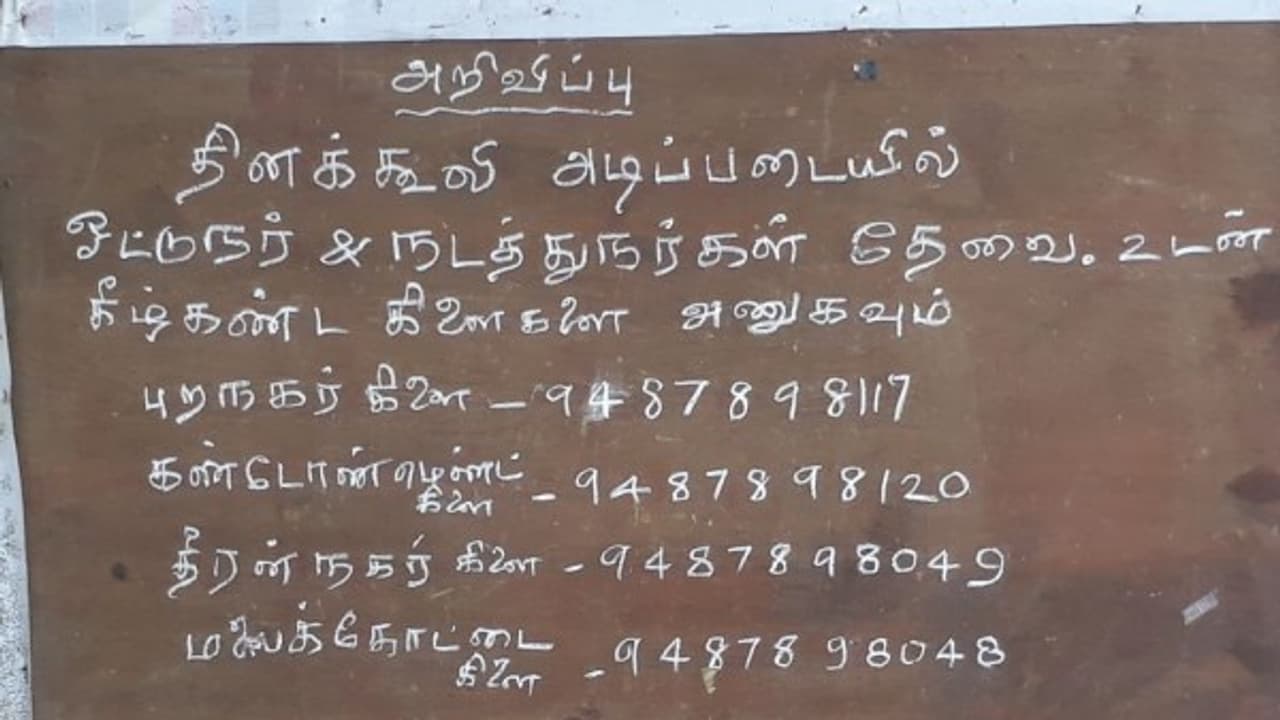 அறிவிப்பு
தினக்கூலி அடிப்படையில்
ஓட்டுநர் & நடத்துநர்கள் தேவை. உடன்
கீழ்கண்ட கிளைகளை அனுகவும்
புறநகர் கிளை - 9487898117
கண்டோண்மெண்ட் கிளை - 9487898120
தீரன் நகர் கிளை - 9487898049
மலைக்கோட்டை கிளை - 9487898048